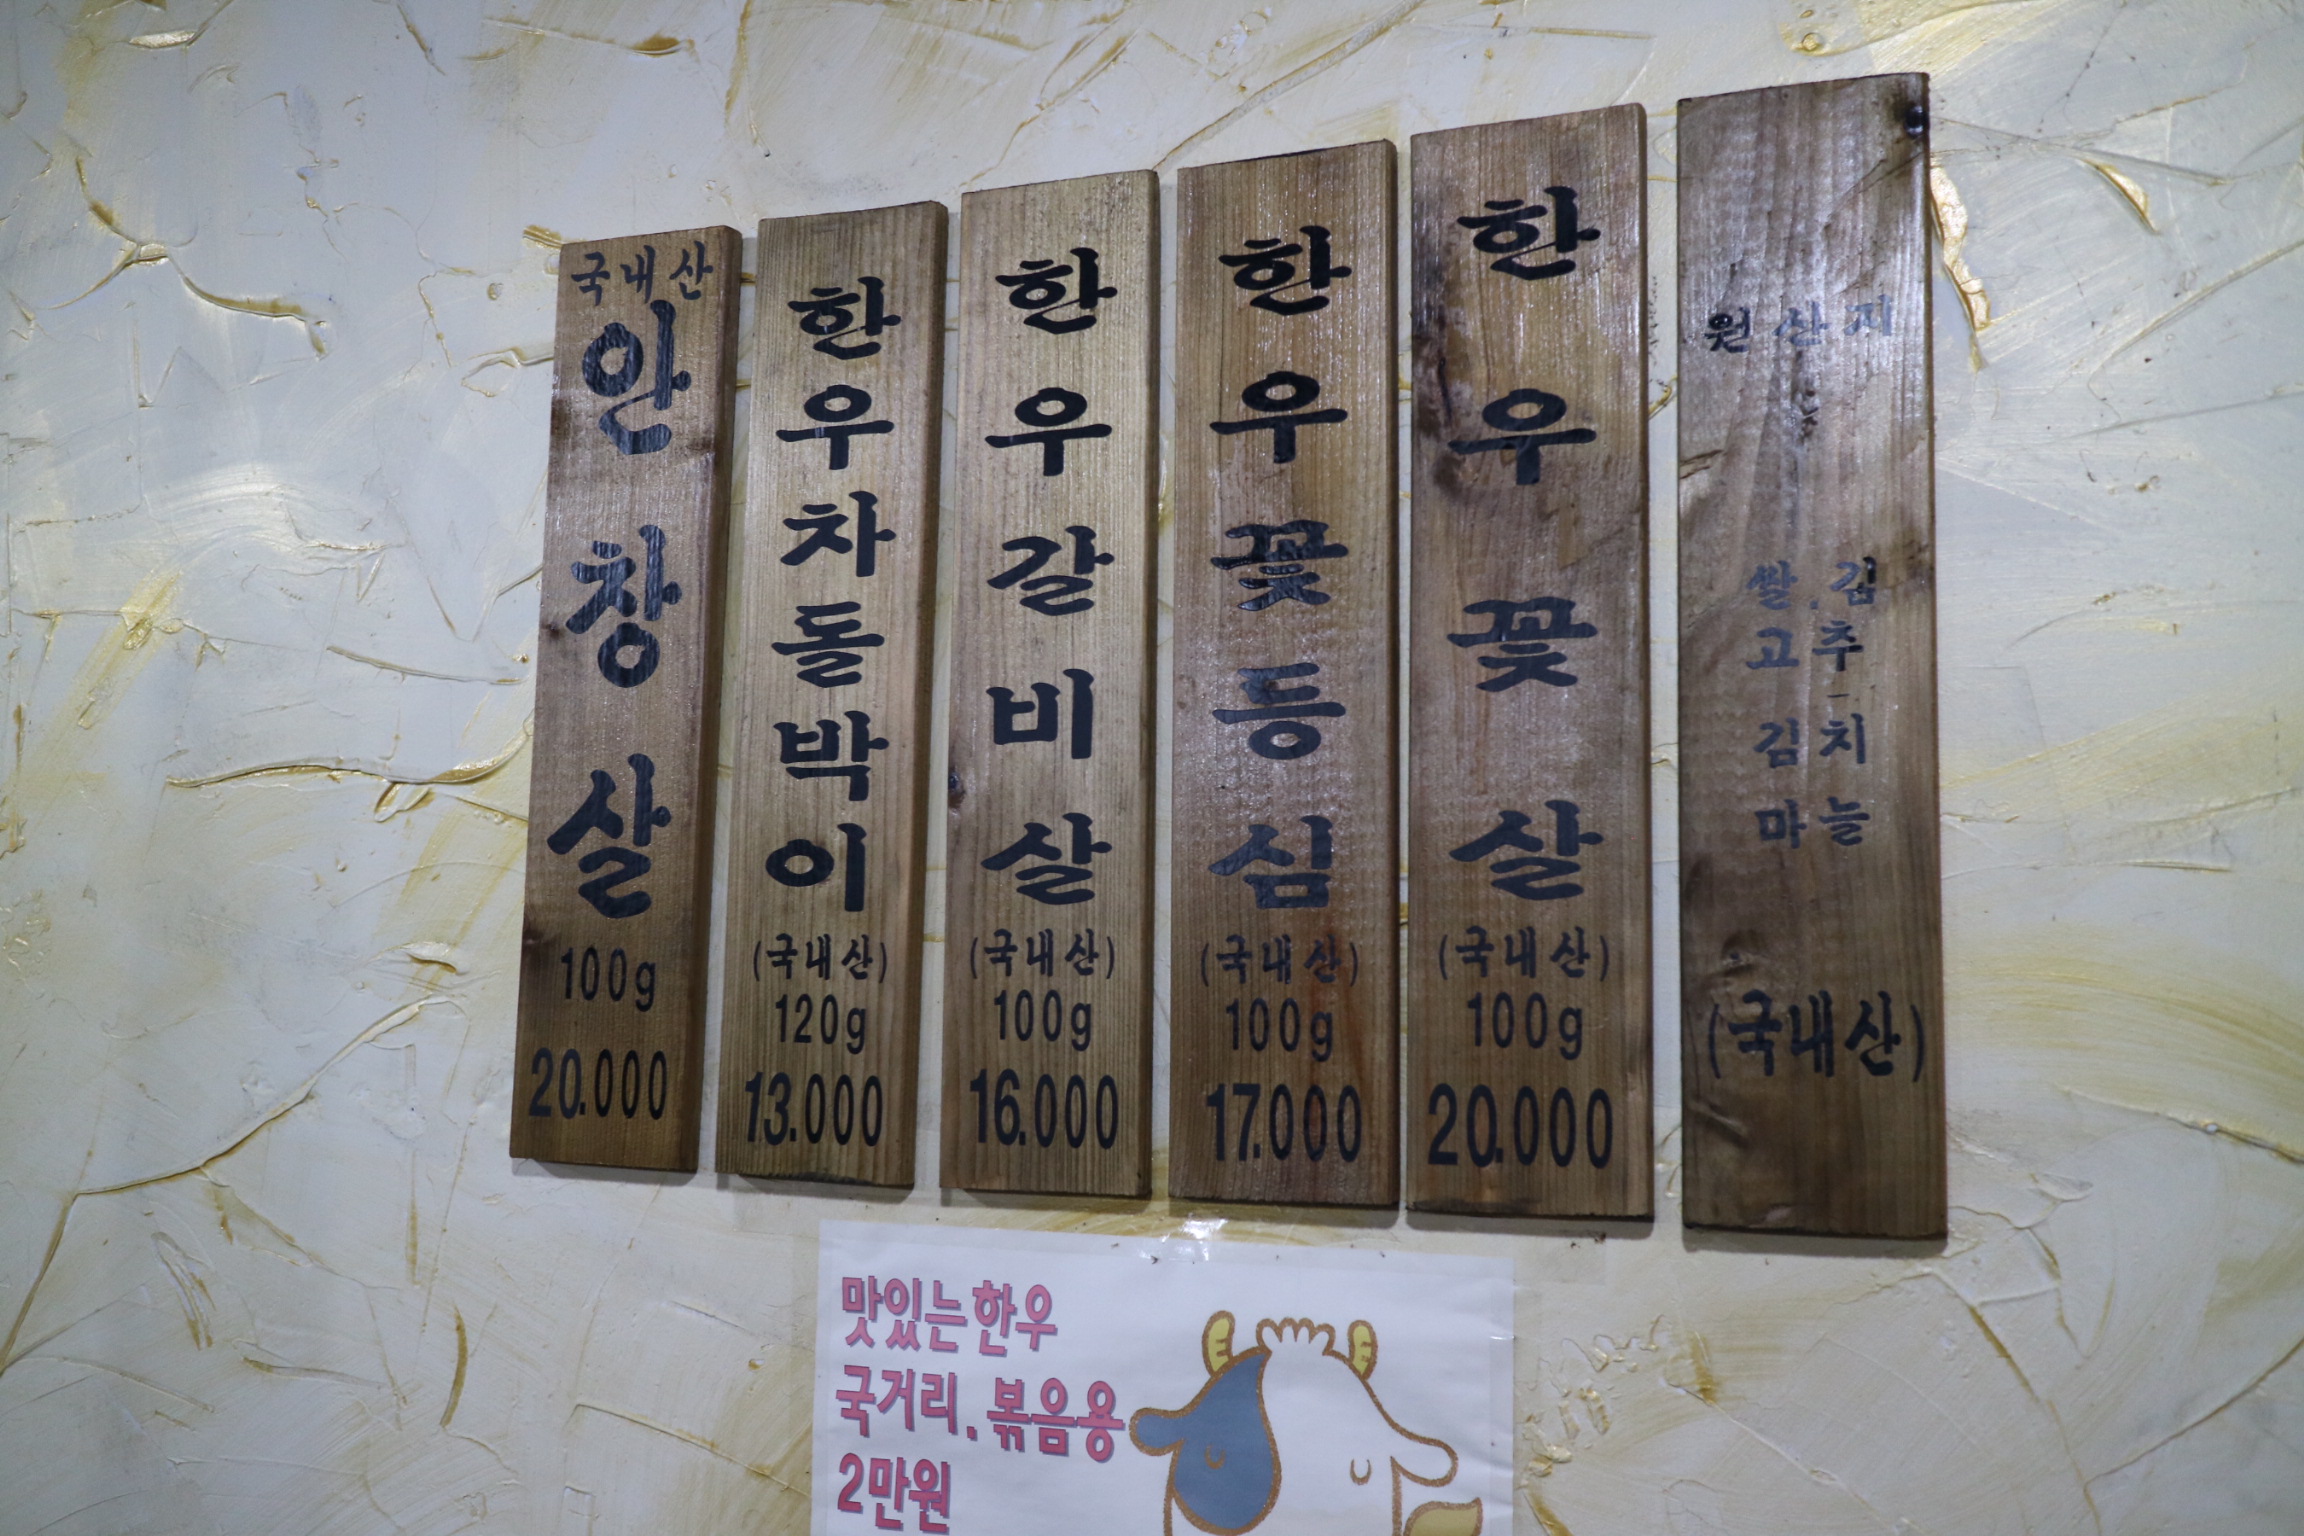 국내산
안창살
100g
20.000
한우차돌박이
(국내산)
120g
13.000
한우갈비살
(국내산)
100g
16.000
한우꽃등심
(국내산)
100g
17.000
한우꽃살
(국내산)
100g
20.000
원산지
쌀.김
고추
김치
마늘
(국내산)
맛있는한우
국거리.볶음용
2만원